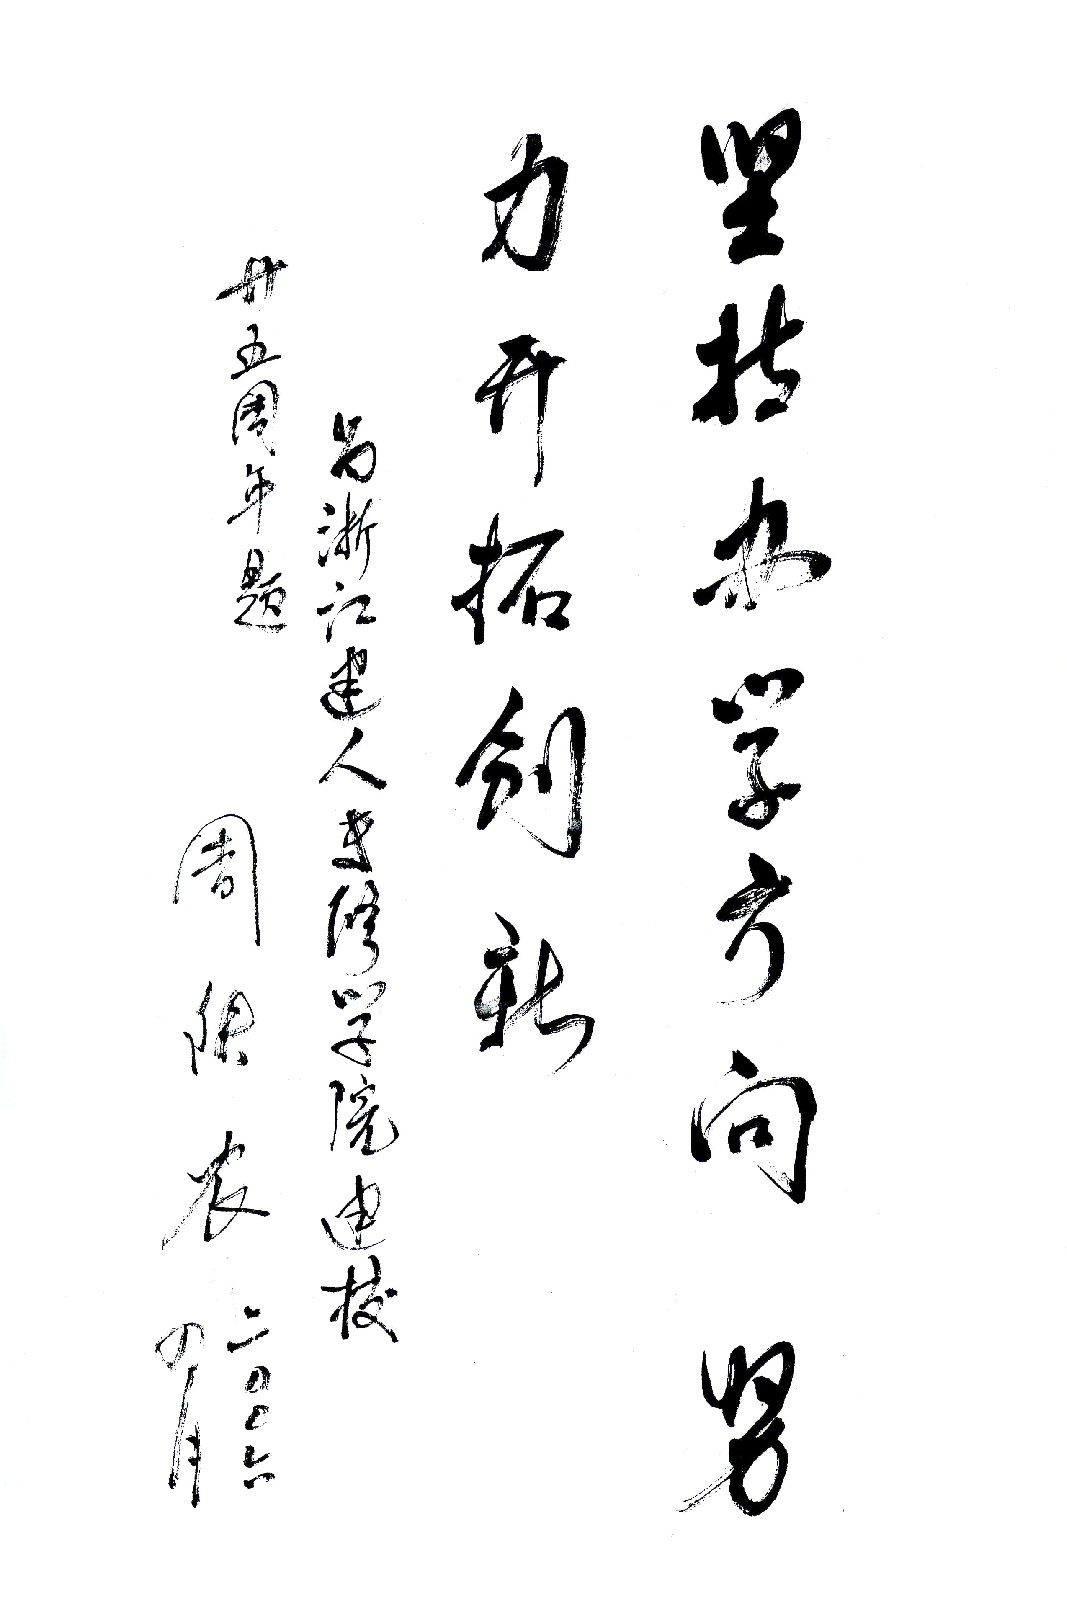 坚持办学方向 努
力开拓创新
为浙江建人专修学院建校
廿五周年题
周 农
二〇〇六
四月